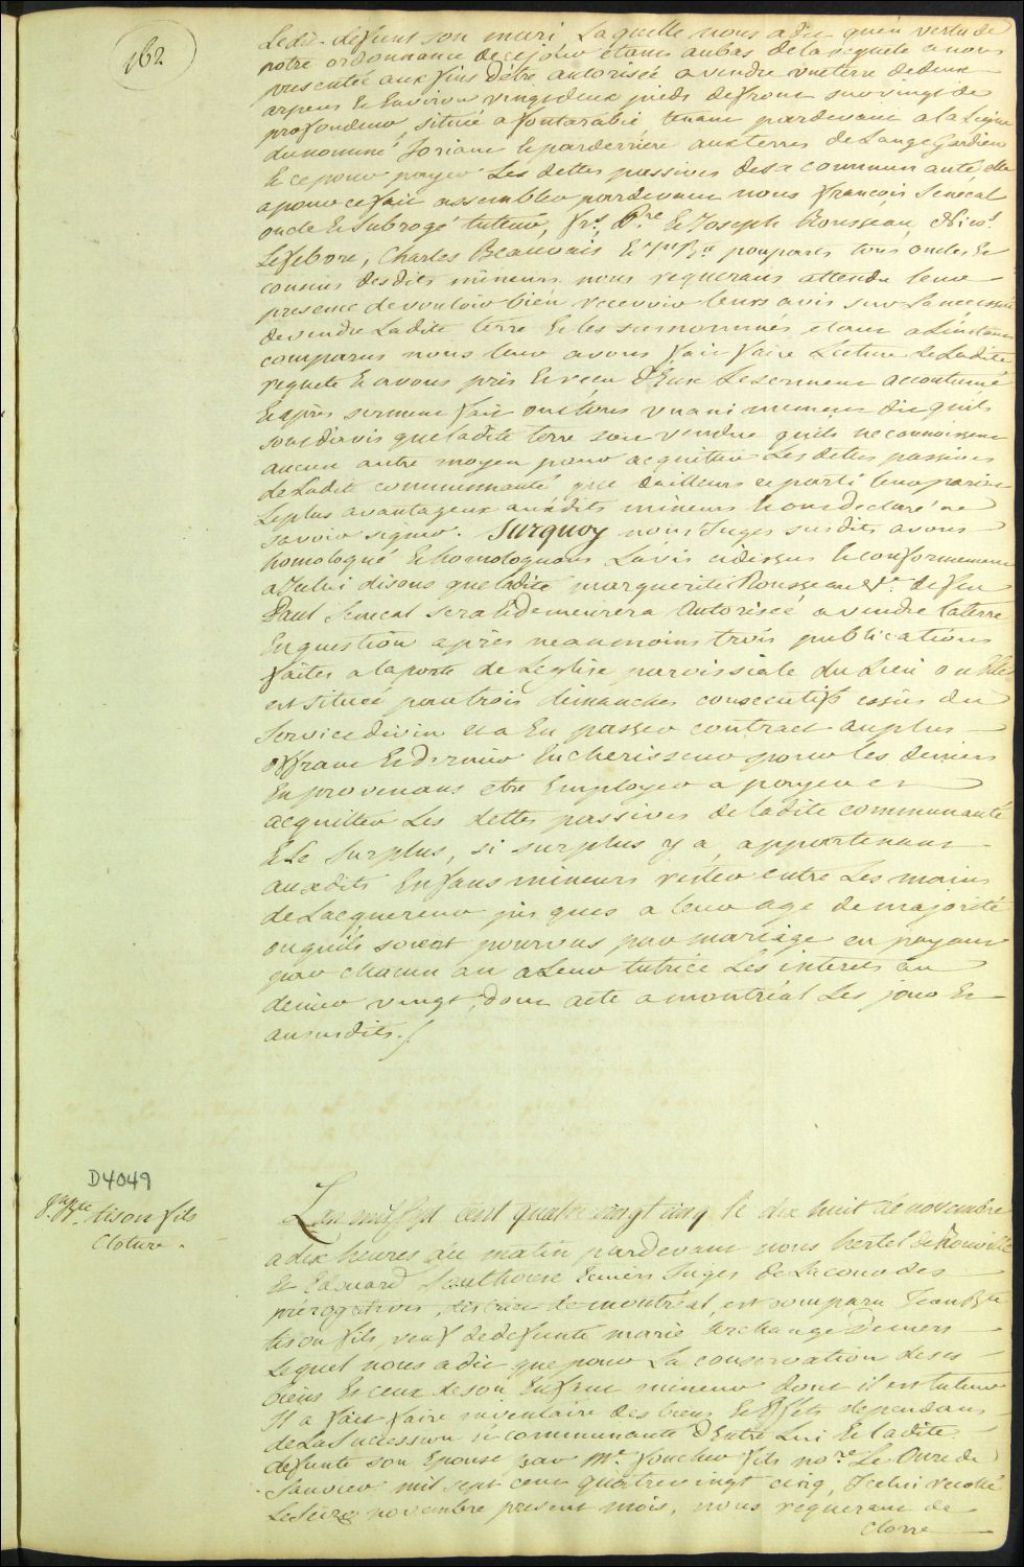 162
Ledit défunt son mari, Laquelle nous a dit qu'en vertu de
notre ordonnance de cejour étant aubas de la requete a nous
presentée aux fins d'être autorisée a vendre une terre de deux
arpens & Environ vingt deux pieds defront sur vingt de
profondeur, située a fontarabie, tenant pardevant a la Ligne
du nommé Joriane & parderriere aux terres de Lange Gardien
& ce pour payer Les dettes passives desa communauté, elle
a pour ce fait assembler pardevant nous françois Senecal
oncle & Subrogé tuteur, frs, Pre & Joseph Rousseau, Nics
Lefebvre, Charles Beauvais & Jn Bte poupart tous oncles &
cousins desdits mineurs nous requerant attendu leur
presence de vouloir bien recevoir leurs avis sur La necessité
de vendre Ladite terre & les surnommés etant a Linstant
comparus nous leur avons fait faire Lecture de Ladite
requete & avons pris & recu d'Eux Leserment accoutumé
& après serment fait ont tous unanimement dit quils
sont d'avis que ladite terre soit vendue quils ne connoissent
aucun autre moyen pour acquitter Les dettes passives
de Ladite communauté que d'ailleurs ce parti leur paroit
Le plus avantageux auxdits mineurs & ont declaré ne
savoir signer. Surquoy nous Juges susdits avons
homologué & homologuons Lavis cidessus & conformement
a Icelui disons que ladite marguerite Rousseau Ve. de feu
Paul Senecal sera & demeurera Autorisée a vendre la terre
En question après neanmoins trois publications
faites a la porte de Leglise paroissiale du Lieu ou Elle
est Située par trois dimanches consecutifs issue du
Service divin et a En passer contract au plus
offrant & dernier Encherisseur pour les deniers
En provenans etre Employer a payer et
acquitter Les dettes passives de ladite communauté
& Le Surplus, si surplus y a, appartenant
auxdits Enfans mineurs rester entre Les mains
de Lacquereur jusques a leur age de majorité
ou quils soient pourvus par mariage en payant
par chacun an a Leur tutrice Les interets au
denier vingt, dont acte a montréal Les jour &
an susdits./
D4049
Jn Bte. tison fils
Cloture.
Lan mil sept cent quatre vingt cinq le dix huit de novembre
a dix heures du matin pardevant nous hertel de Rouville
& Edouard Southouse Ecuiers Juges de La cour des
prérogatives, district de montréal, est comparu Jean Bte
tison fils, veuf de defunte marie Archange Demers
Lequel nous a dit que pour La conservation de ses
biens & ceux de son Enfant mineur dont il est tuteur
Il a fait faire inventaire des biens & Effets dependans
de La Succession & communauté d'Entre Lui & ladite
defunte son Epouse par Mr. foucher fils nore Le Onze de
Janvier mil sept cent quatre vingt cinq, Icelui recollé
Le seize novembre present mois, nous requerant de
Clorre